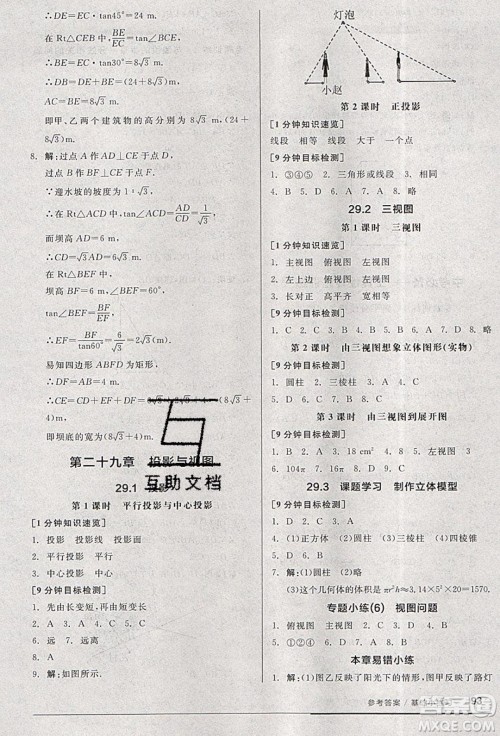 ∴DE=EC·tan45°=24 m.
在 Rt△CEB 中，BE/EC=tan∠BCE，
∴BE=EC·tan∠BCE=24×√3/3=8√3 m.
∴BD=DE+BE=(24+8√3) m.
AC=BE=8√3 m.
即甲、乙两个建筑物的高分别为 8√3 m，(24+
8√3) m.
8. 解：过点 A 作 AD⊥CE 于点 D，
过点 B 作 BF⊥CE 于点 F.
∵迎水坡的坡度为
∴在 Rt△ACD 中，tan∠ACD=
∵坝高 AD=6 m，
∴CD=8 m.
在 Rt△BEF 中，
∵tan∠BEF=BF/EF，
∴EF=BF/tan60°=6/√3=2√3(m).
易知四边形 ABFD 为矩形，
∴DF=AB=4 m.
∴CE=CD+DF+EF=8+4+2√3=
m.
即坝底的宽为
第二十九章 投影与视图
29.1 投影
第 1 课时 平行投影与中心投影
[1 分钟知识速览]
1. 投影 投影线 投影面
2. 平行投影 平行
3. 中心投影
[9 分钟目标检测]
1. 先由长变短，再由短变长
2. ③④①② 3. A 4. A 5. A
6. 远 7. 远 8. A
9. 解：如图所示.
灯泡
小赵
第 2 课时 正投影
[1 分钟知识速览]
线段 相等 线段 大于 一个点
[9 分钟目标检测]
1. ③①④② 2. 三角形或线段
3. B 4. D 5. D 6. A 7. A 8. A
29.2 三视图
第 1 课时 三视图
[1 分钟知识速览]
1. 主视图 俯视图 左视图
2. 左上边 俯视图 左视图
3. 长对正 高平齐 宽相等
[9 分钟目标检测]
1. C 2. C 3. D 4. B 5. A 6. A
第 2 课时 由三视图想象立体图形(实物)
[9 分钟目标检测]
1. 圆柱 2. 三棱柱 3. B 4. A
5.
第 3 课时 由三视图到展开图
[9 分钟目标检测]
1. 圆柱 2. A 3. 18 cm² 4. B 5. B
6. 104π 7. 24 8. 3π
29.3 课题学习 制作立体模型
1. (1)正方体 (2)圆柱 (3)三棱柱 (4)四棱锥
2. C 3. C 4. D 5. A 6. 圆柱
7. 解：(1)圆柱.
(2)这个几何体的体积是 πr²h≈3.14×5²×20=1570.
专题小练(6) 视图问题
1. 俯视图 主视图 2. C 3. C 4. B
5. A 6. A 7. B 8. B 9. D
本章易错小练
1. 解：图乙反映了阳光下的情形，图甲反映了路灯
互助文档
参考答案 / 基础小练习 93
答案圈
MXQE.COM